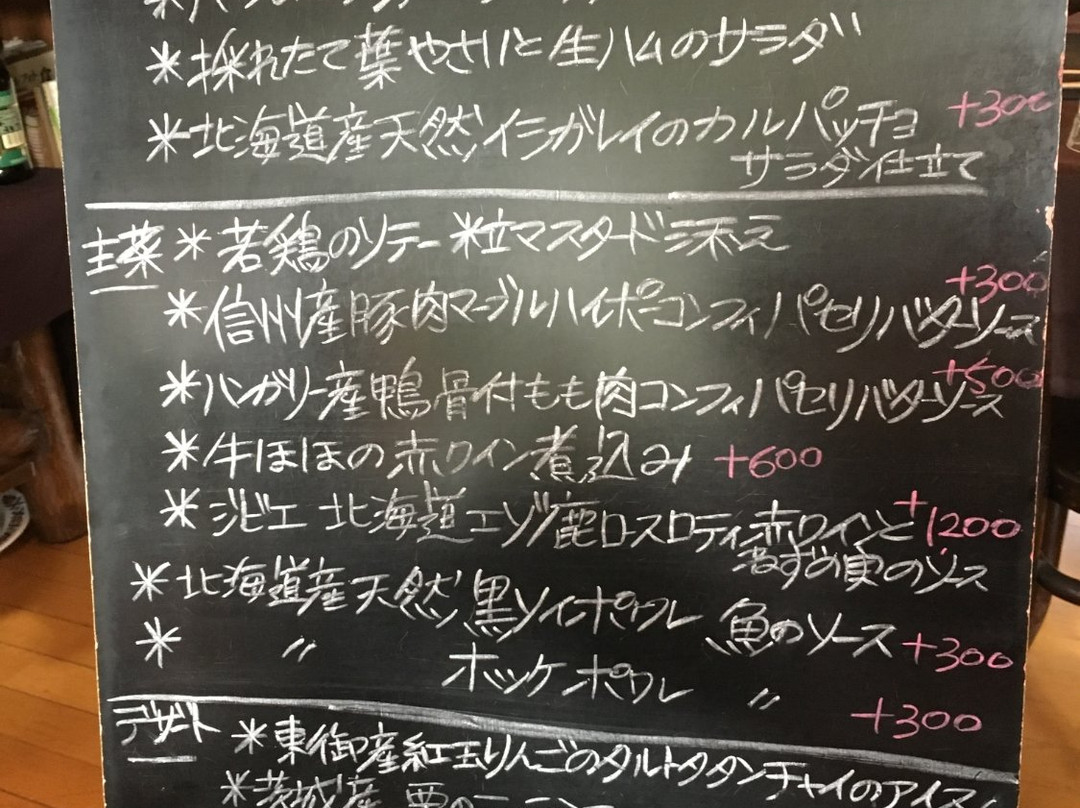 *採れたて葉やさいと生ハムのサラダ
*北海道産天然イシガレイのカルパッチョ +300
サラダ仕立て
主菜 *若鶏のソテー 粒マスタード添え
+300
*信州産豚肉マーブルハイポーコンフィ パセリバターソース
+500
*ハンガリー産鴨骨付もも肉コンフィ パセリバターソース
*牛ほほの赤ワイン煮込み +600
*ジビエ 北海道エゾ鹿ロースロティ 赤ワインと +1200
のソース
*北海道産天然黒ソイポワレ 魚のソース +300
* 〃 ホッケ ポワレ 〃 +300
デザート *東御産紅玉りんごのタルトタタン チャイのアイス
*茨城産 栗の